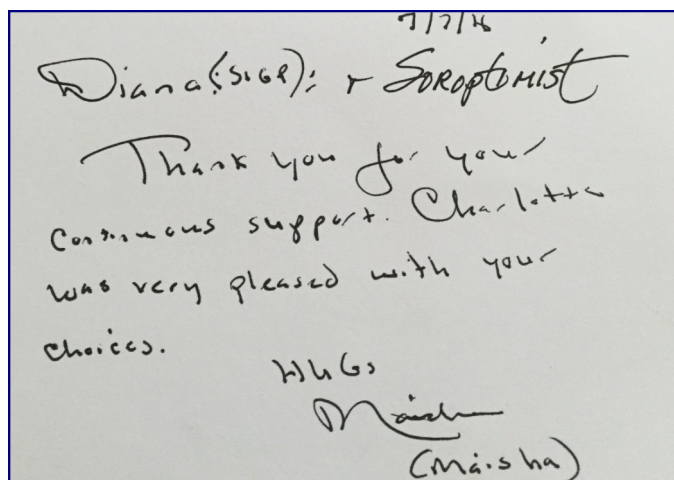 7/7/16
Diana (SIGP): + Soroptomist
Thank you for your
continuous support. Charlotte
was very pleased with your
choices.
Hugs
Maisha
(Maisha)